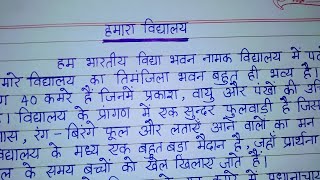 हमारा विद्यालय
हम भारतीय विद्या भवन नामक विद्यालय में
मारे विद्यालय का तिमंजिला भवन बहुत ही भव्य है।
40 कमरे हैं जिनमें प्रकाश, वायु और पंखों की
। विद्यालय के प्रांगण में एक सुन्दर फुलवाड़ी है जिस
रंग-बिरंगे फूल और लताएँ आने वालों का मन
द्यालय के मध्य एक बहुत बड़ा मैदान है, जहाँ प्रार्थना
के समय बच्चों को खेल खिलाए जाते हैं।